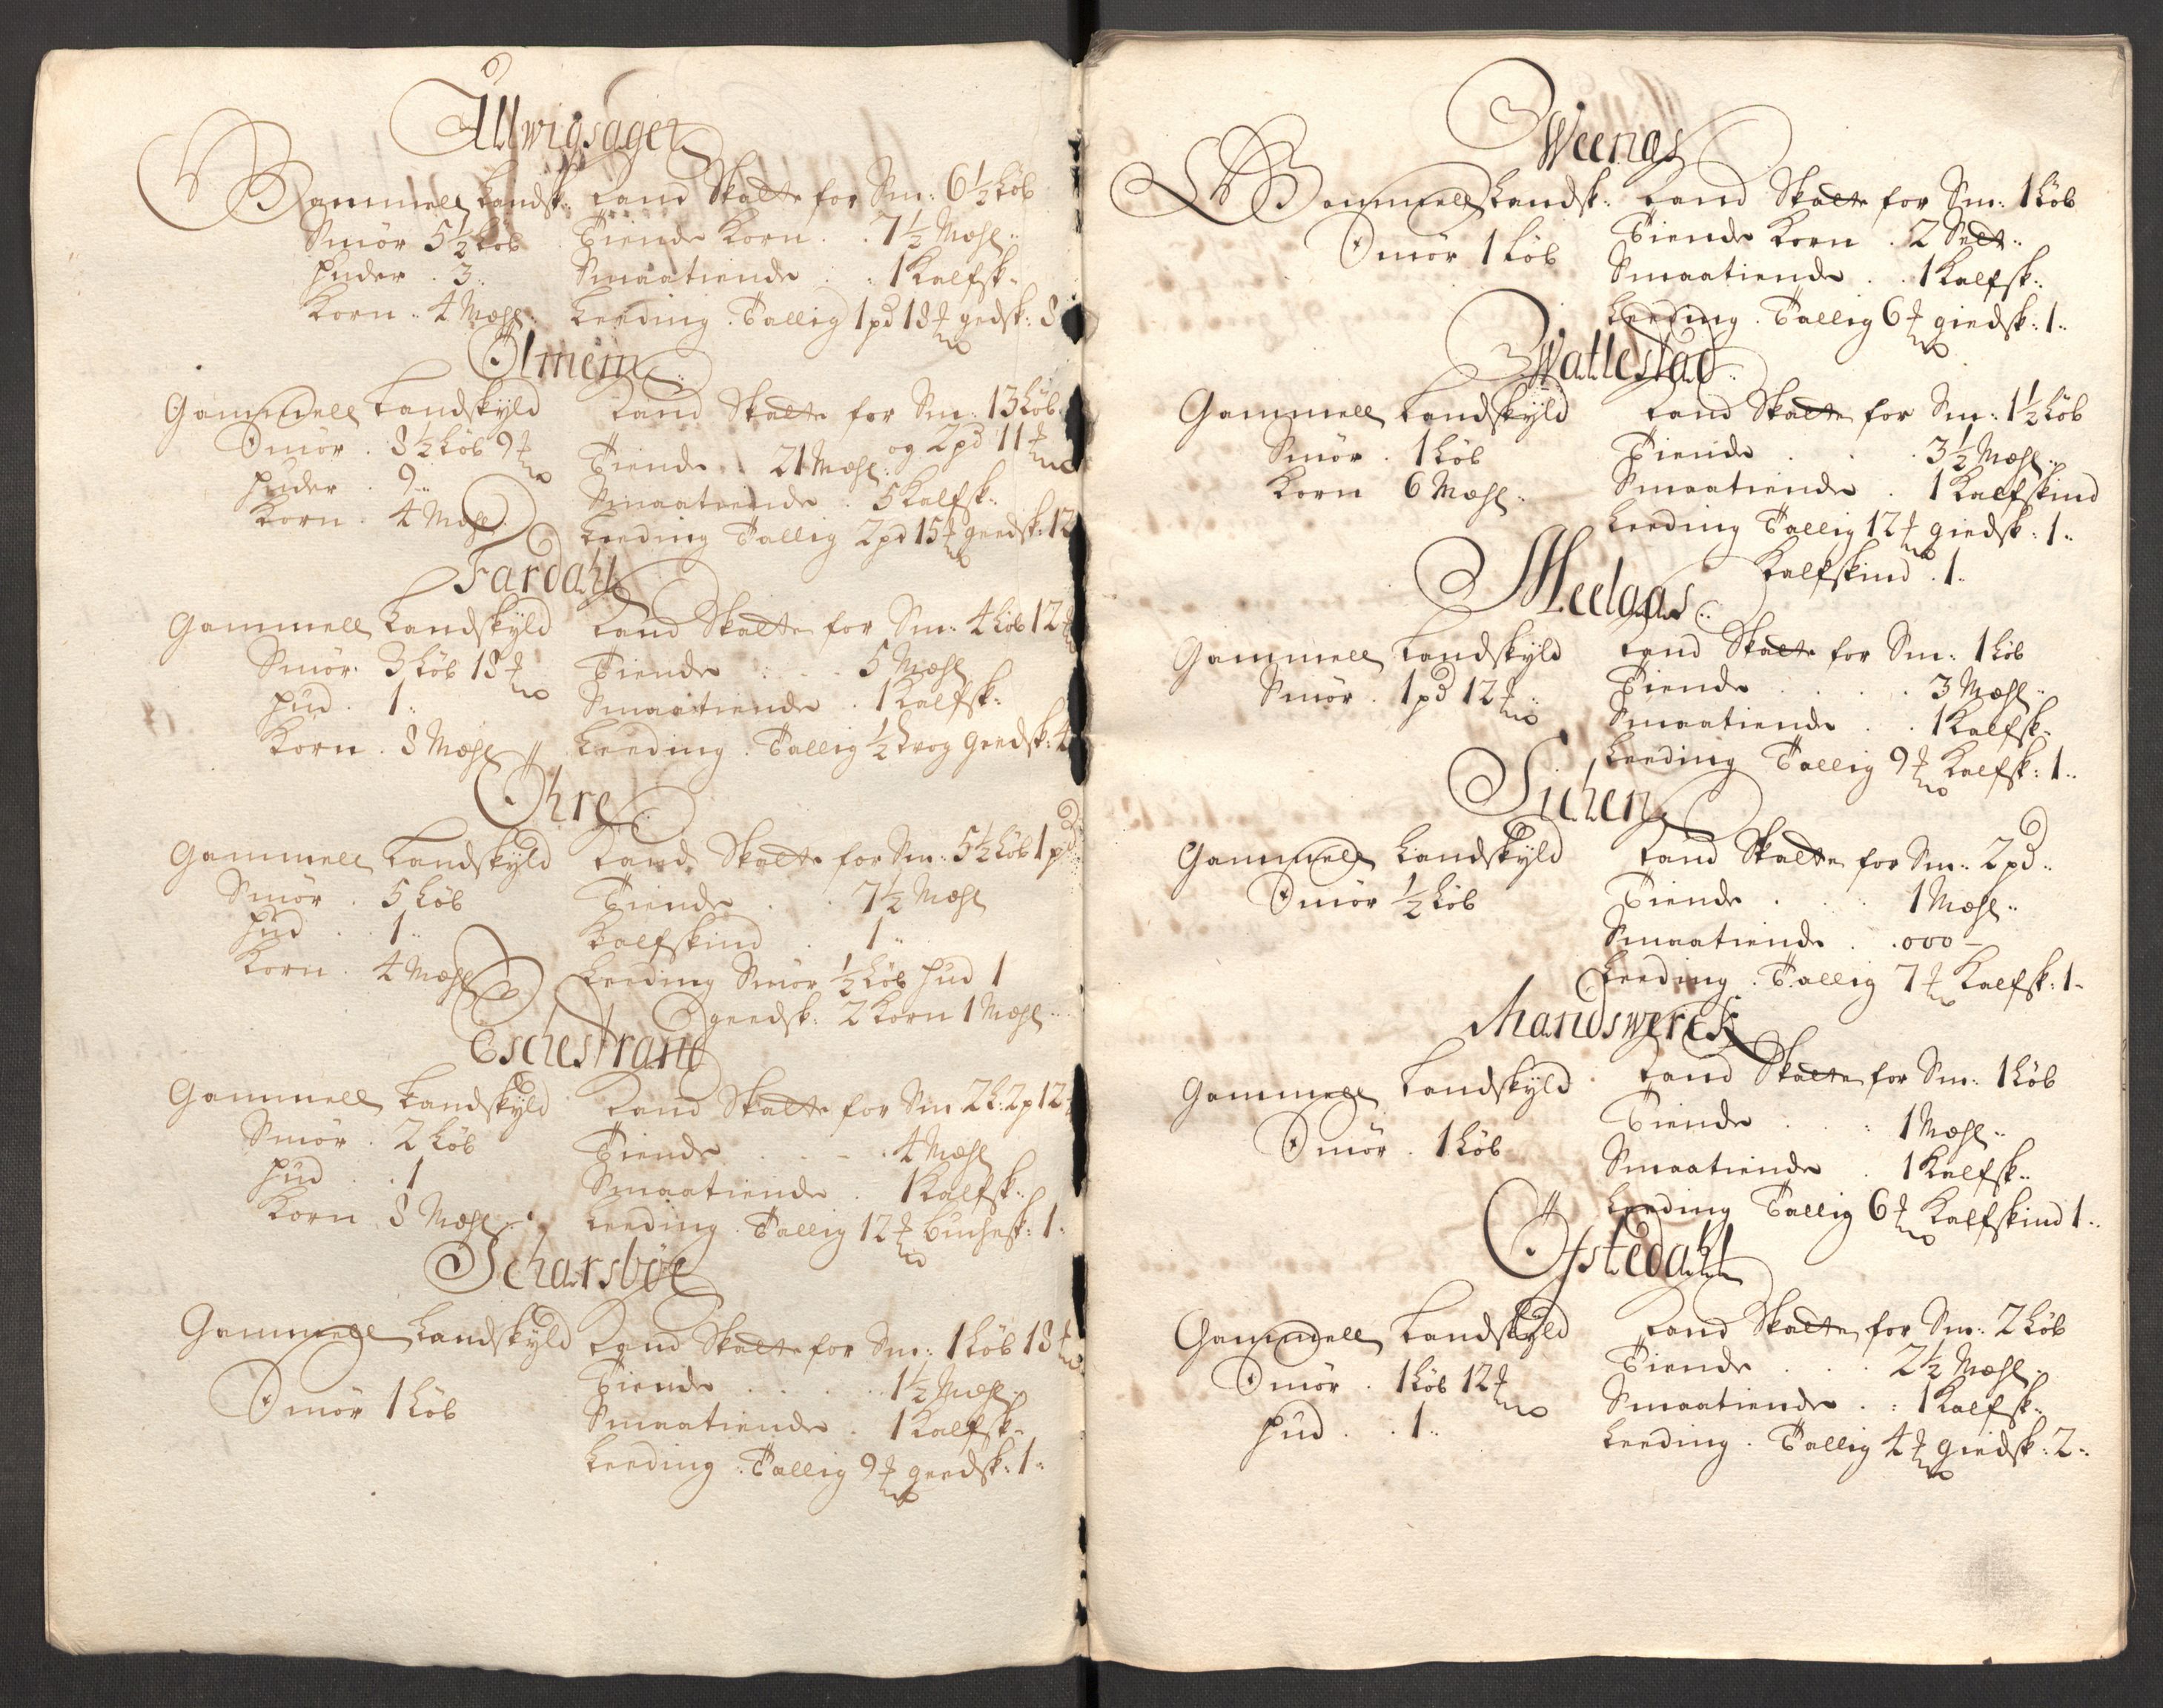 Ullwigsager
Gammell Landsk: Land Skatte for Sm: 6½ Løb
Smør 5½ Løb Tiende Korn . . 7½ Mæhl..
Huder . 3.. Smaatiende . . 1 Kalfsk..
Korn .. 4 Mæhl.. Leeding . Tallig 1 pd 18 ℔ gedsk: 8
Olmem
Gammell Landskÿld Land Skatte for Sm: 13 Løb
Smør . 8½ Løb 9 ℔ og 2 pd 11 ℔
Huder . 9.. Tiende . 21 Mæhl..
Korn . 4 Mæhl Smaatiende . 5 Kalfsk..
Leeding Tallig 2 pd 15 ℔ geedsk: 12
Fardahl
Gammell Landskÿld Land Skatte for Sm: 4 Løb 12 ℔
Smør . 3 Løb 18 ℔ Tiende . . . 5 Mæhl
Hud . 1.. Smaatiende . 1 Kalfsk..
Korn . 8 Mæhl Leeding . Tallig ½ Log Geedsk: 4
Öhre
Gammell Landskÿld Land Skatte for Sm: 5½ Løb 1 pd
Smør . 5 Løb Tiende . . 7½ Mæhl
Hud . . 1.. Kalfskind . 1..
Korn . 4 Mæhl Leeding Smør ½ Løb Hud 1
geedsk: 2 Korn 1 Mæhl..
Eschestrand
Gammell Landskÿld Land Skatte for Sm 2 L: 2 p 12 ℔
Smør . 2 Løb Tiende . . - . 4 Mæhl
Hud . . 1 Smaatiende . 1 Kalfsk..
Korn 8 Mæhl.. Leeding . Tallig 12 ℔ Buchesk: 1.
Scharsbøe
Gammell Landskÿld Land Skatte for Sm: 1 Løb 18 ℔
Smør 1 Løb Tiende . . . . 1½ Mæhl..
Smaatiende . 1 Kalfsk..
Leeding . Tallig 9 ℔ geedsk: 1..
Weenes
Gammell Landsk: Land Skatte for Sm: 1 Løb
Smør 1 Løb Tiende Korn . 2 Sett..
Smaatiende . . 1 Kalfsk..
Leeding . Tallig 6 ℔ giedsk: 1..
Wattestad
Gammell Landskÿld Land Skatte for Sm: 1½ Løb
Smør . 1 Løb Tiende . . . 3½ Mæhl..
Korn 6 Mæhl.. Smaatiende . 1 Kalfskind
Leeding Tallig 12 ℔ giedsk: 1..
Kalfskind . 1.
Meelaas
Gammell Landskÿld Land Skatte for Sm: 1 Løb
Smør . 1 pd 12 ℔ Tiende . . . . 3 Mæhl..
Smaatiende . . 1 Kalfsk..
Leeding Tallig 9 ℔ Kalfsk: 1..
Sichen
Gammell Landskÿld Land Skatte for Sm: 2 pd..
Smør ½ Løb Tiende . . . 1 Mæhl..
Smaatiende . . 000 -
Leeding . Tallig 7 ℔ Kalfsk: 1-
Mandswerck
Gammell Landskÿld Land Skatte for Sm: 1 Løb
Smør . 1 Løb Tiende . . : 1 Mæhl..
Smaatiende . 1 Kalfsk..
Leeding Tallig 6 ℔ Kalfskind 1..
Öfstedahl
Gammell Landskÿld Land Skatte for Sm: 2 Løb
Smør . 1 Løb 12 ℔ Tiende . . . 2½ Mæhl..
Hud . . 1.. Smaatiende . : 1 Kalfsk..
Leeding . Tallig 4 ℔ giedsk: 2..